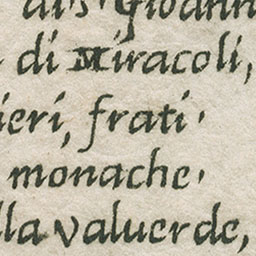 di s. Giovann
di Miracoli,
ieri, frati.
monache.
lla valuerde,